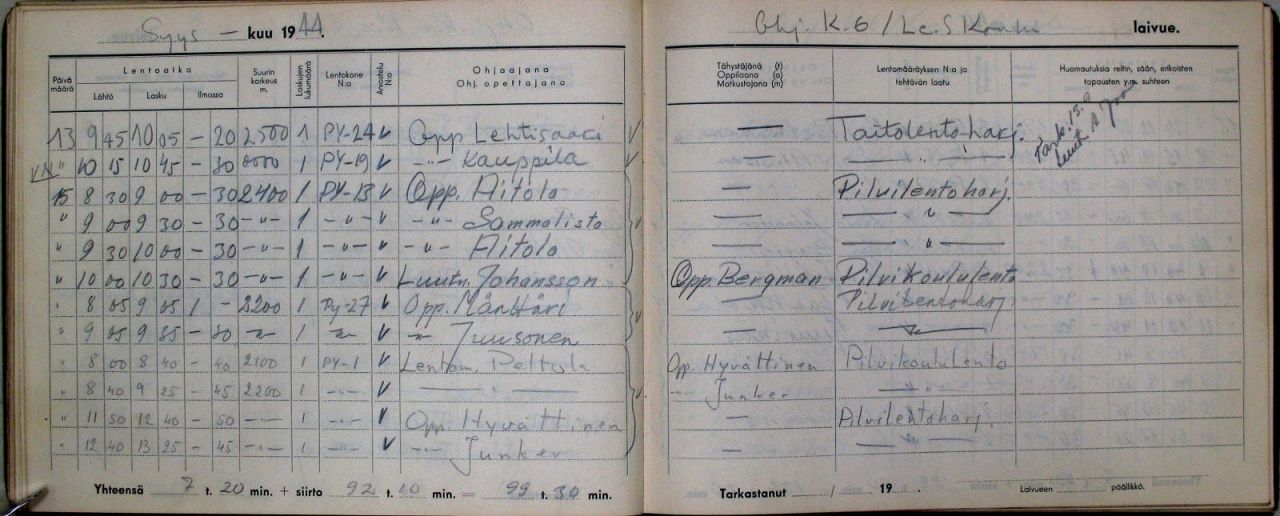 Syys - kuu 1944.
Ohj. K.6 / Le.S laivue.
Päivä määrä
Lentoaika
Lähtö Lasku Ilmassa
Suurin korkeus m.
Laskujen lukumäärä
Lentokone N:o
Ohjaajana
Ohj. opettajana
Tähystäjänä (t)
Oppilaana (o)
Matkustajana (m)
Lentomääräyksen N:o ja tehtävän laatu
Huomautuksia reitin, sään, erikoisten tapausten y.m. suhteen
13 9 45 10 05 - 20 2500 1 PY-24 v Opp. Lehtisaari v — Taitolentoharj.
" 10 15 10 45 - 30 1 PY-19 v -"- Kauppila v — — " —
15 8 30 9 00 - 30 2400 1 PY-13 v Opp. Aitola — Pilvilentoharj.
" 9 00 9 30 - 30 -"- 1 -"- v -"- Sammalisto v — — " —
" 9 30 10 00 - 30 -"- 1 -"- v -"- Aitola — — " —
" 10 00 10 30 - 30 -"- 1 -"- v Luutn. Johansson Opp. Bergman Pilvikoululento
" 8 05 9 05 1 - 2200 1 Py-27 v Opp. Mänttäri — Pilvilentoharj.
" 9 05 9 35 - 30 -"- 1 -"- v -"- Juusonen v — — " —
" 8 00 8 40 - 40 2100 1 PY-1 v Lentom. Peltola Opp. Hyvättinen Pilvikoululento
" 8 40 9 25 - 45 2200 1 -"- v — " — v -"- Junker — " —
" 11 50 12 40 - 50 -"- 1 -"- v Opp. Hyvättinen — Pilvilentoharj.
" 12 40 13 25 - 45 -"- 1 -"- v -"- Junker — — " —
Tark. 13.9
Luutn.
Yhteensä 7 t. 20 min. + siirto 92 t. 10 min. = 99 t. 30 min.
Tarkastanut / 19 . Laivueen päällikkö.